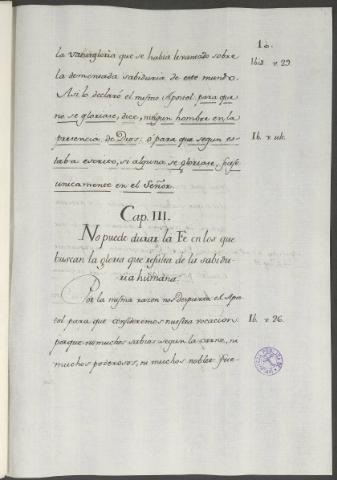 10.
la vanagloria que se habia levantado sobre
la demontada sabiduria de este mundo.
Ibid. v. 29.
Asi lo declaró el mismo Apostol. para que
no se gloriase, dice, ningun hombre en la
presencia de Dios: ó para que segun es-
Ib. v. ult.
taba escrito, si alguno se gloriase, fuese
unicamente en el Señor.
Cap. III.
No puede durar la Fe en los que
buscan la gloria que resulta de la sabidu-
ria humana.
Por la misma razon nos despierta el Apos-
tol para que consideremos nuestra vocacion,
Ib. v. 26.
porque no muchos sabios segun la carne, ni
muchos poderosos, ni muchos nobles fue-